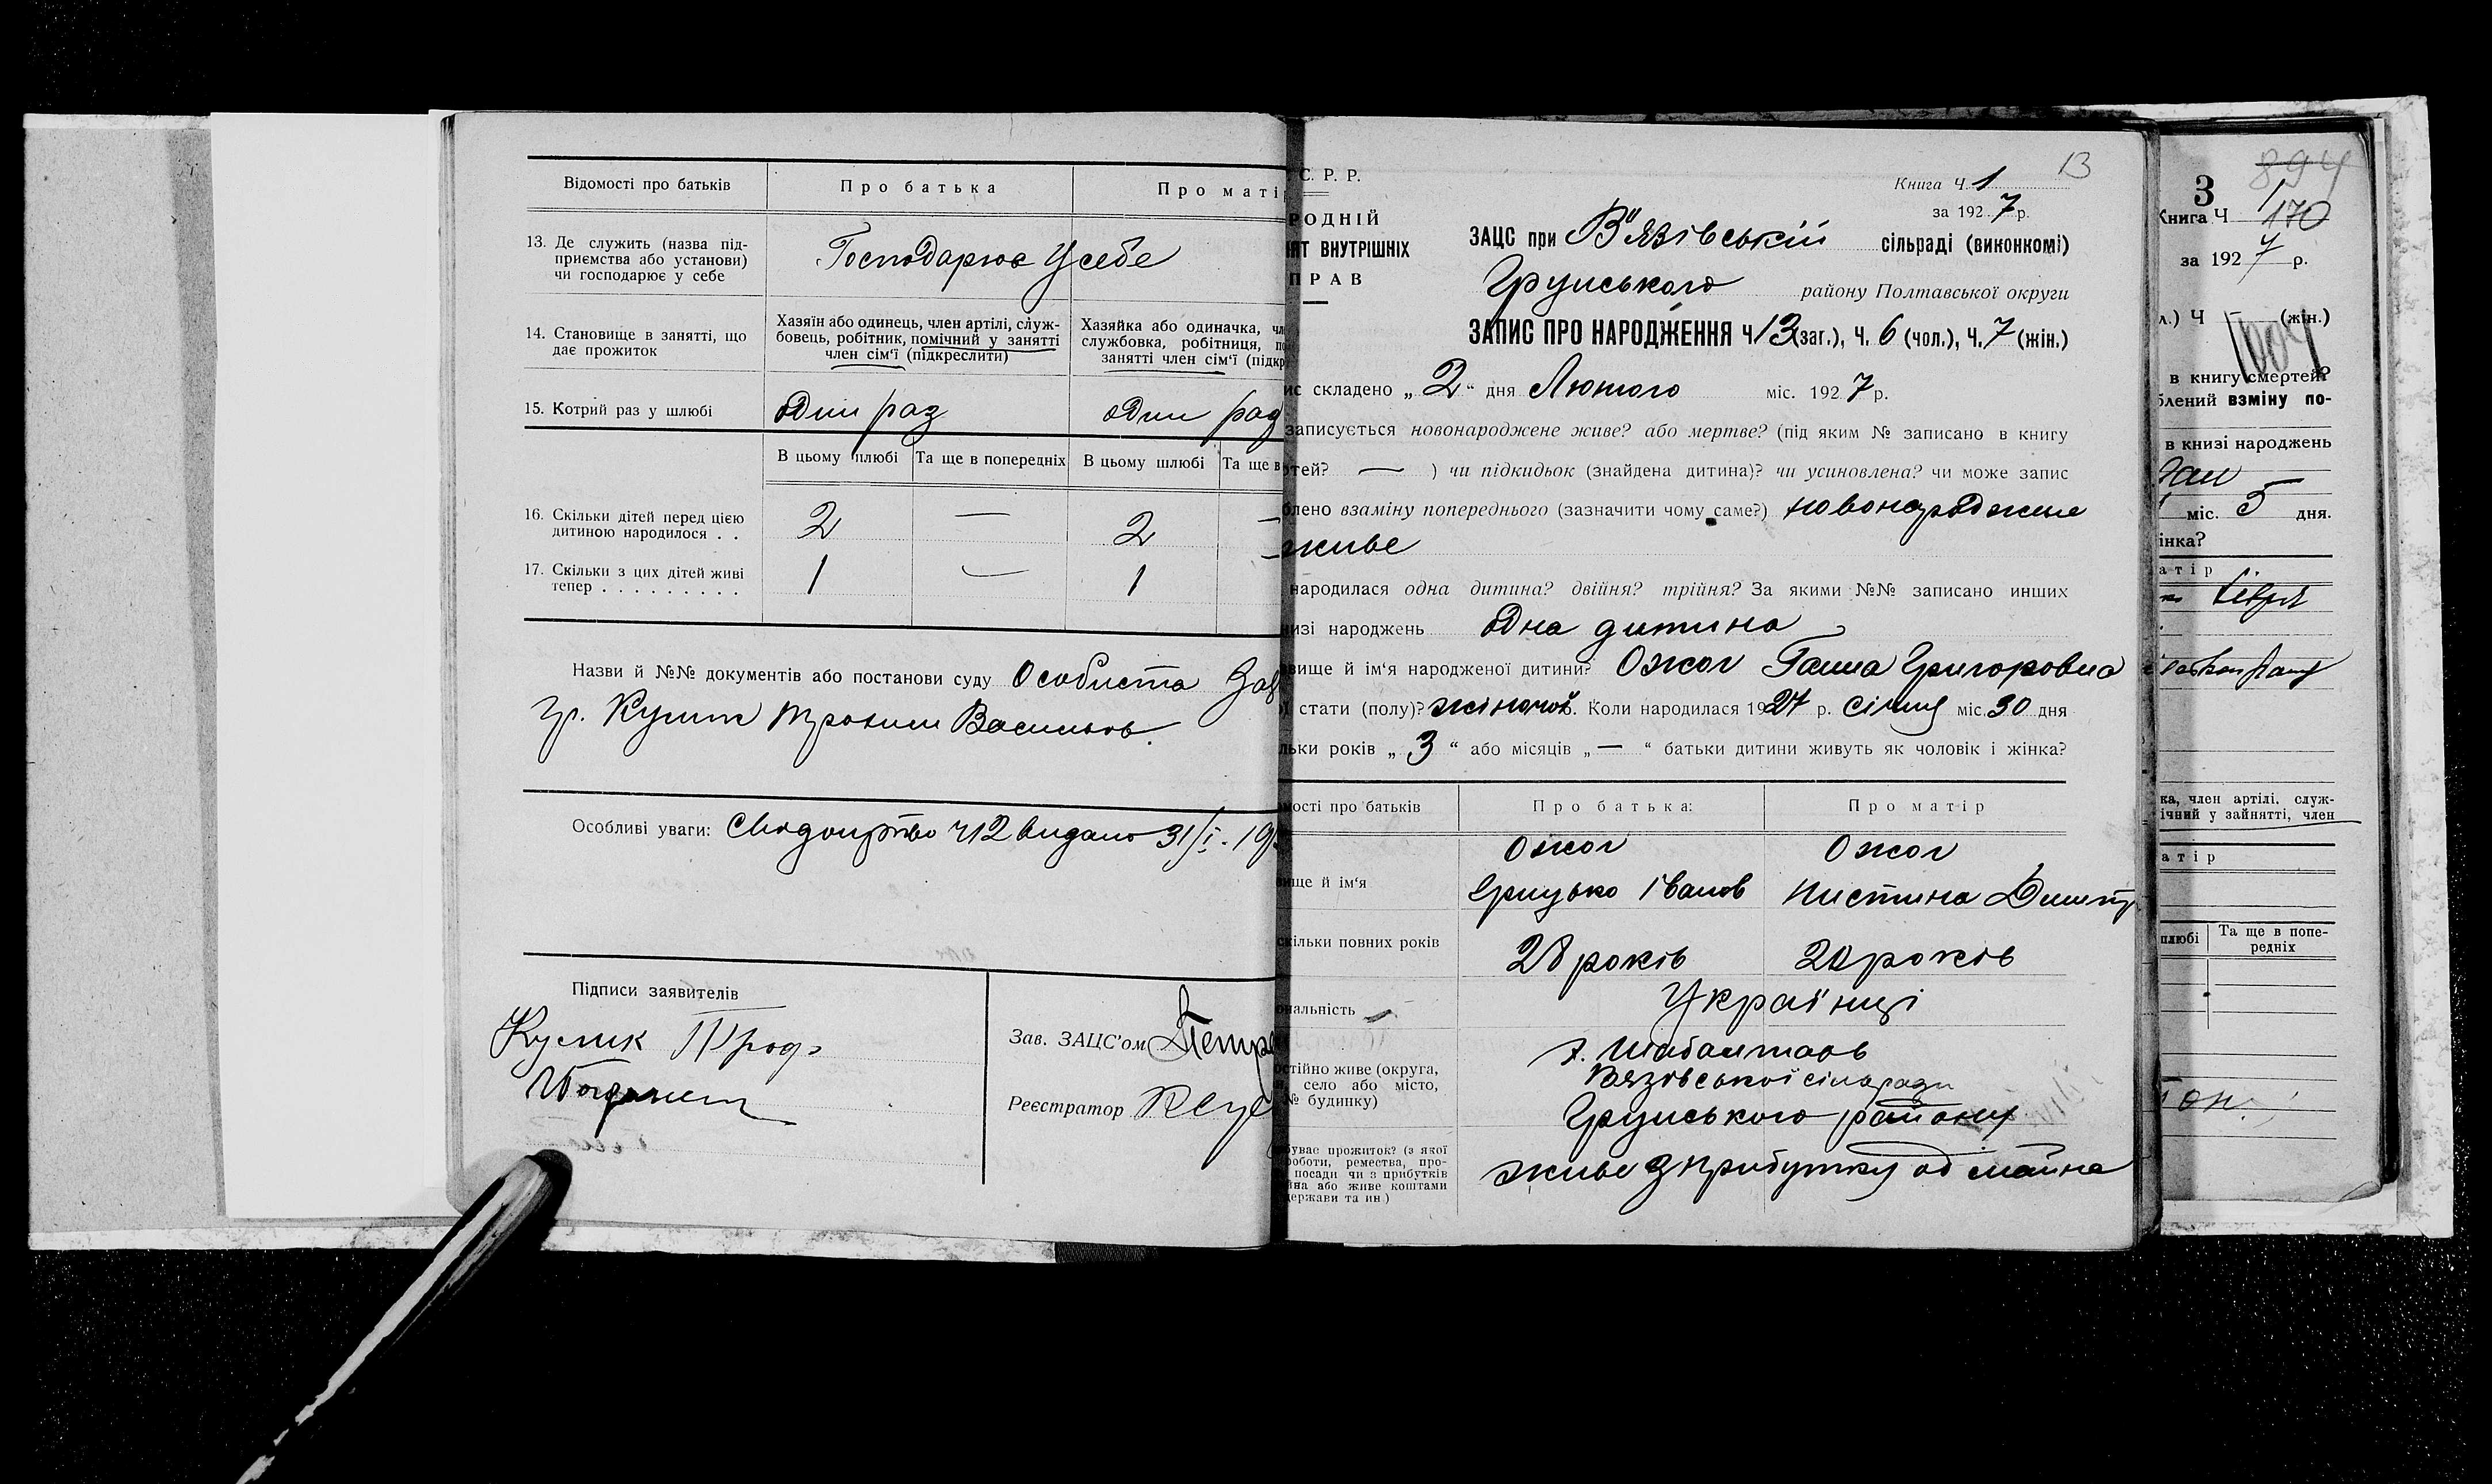 Відомості про батьків
Про батька
Про матір
13. Де служить (назва під-
приємства або установи)
чи господарює у себе
Господарює у себе
14. Становище в занятті, що
дає прожиток
Хазяїн або одинець, член артілі, служ-
бовець, робітник, помічний у занятті
член сім'ї (підкреслити)
Хазяйка або одиначка, чл
службовка, робітниця, по
занятті член сім'ї (підкр
15. Котрий раз у шлюбі
один раз
один раз
В цьому шлюбі
Та ще в попередніх
В цьому шлюбі
Та ще в
16. Скільки дітей перед цією
дитиною народилося . .
2 — 2 —
17. Скільки з цих дітей живі
тепер . . . . . . . . .
1 — 1 —
Назви й №№ документів або постанови суду Особиста
гр. Кулик Василів.
Особливі уваги: ч12 видано 31/I. 19
Підписи заявителів
Кулик
Зав. ЗАЦС'ом Петре
Реєстратор
13
С. Р. Р.
РОДНІЙ
ІЯТ ВНУТРІШНІХ
ПРАВ
Книга Ч. 1
за 1927 р.
ЗАЦС при В'язівській сільраді (виконкомі)
Грунського району Полтавської округи
ЗАПИС ПРО НАРОДЖЕННЯ Ч 13 (заг.), Ч. 6 (чол.), Ч. 7 (жін.)
ис складено „2" дня Лютого міс. 1927 р.
записується новонароджене живе? або мертве? (під яким № записано в книгу
ртей? — ) чи підкидьок (знайдена дитина)? чи усиновлена? чи може запис
блено взаміну попереднього (зазначити чому саме?) новонароджене
живе
народилася одна дитина? двійня? трійня? За якими №№ записано инших
изі народжень одна дитина
вище й ім'я народженої дитини? Ожог Ганна Григоровна
стати (полу)? жіночої. Коли народилася 1927 р. січня міс. 30 дня
льки років „3" або місяців „—" батьки дитини живуть як чоловік і жінка?
мості про батьків
Про батька:
Про матір
вище й ім'я
Ожог
Грицько Іванов
Ожог
Пистина Дмитр
скільки повних років
28 років
20 років
ональність
Українці
остійно живе (округа,
село або місто,
№ будинку)
х.
Вязівської сільради
Грунського району
буває прожиток? (з якої
роботи, ремества, про-
посади чи з прибутків
йна або живе коштами
держави та ин.)
живе з прибутку од майна
894
3
1
Книга Ч 170
за 1927 р.
л.) Ч (жін.)
в книгу смертей?
блений взміну по-
в книзі народжень
міс. 5 дня.
інка?
атір
ка, член артілі, служ-
ічний у зайнятті, член
атір
шлюбі
Та ще в попе-
редніх